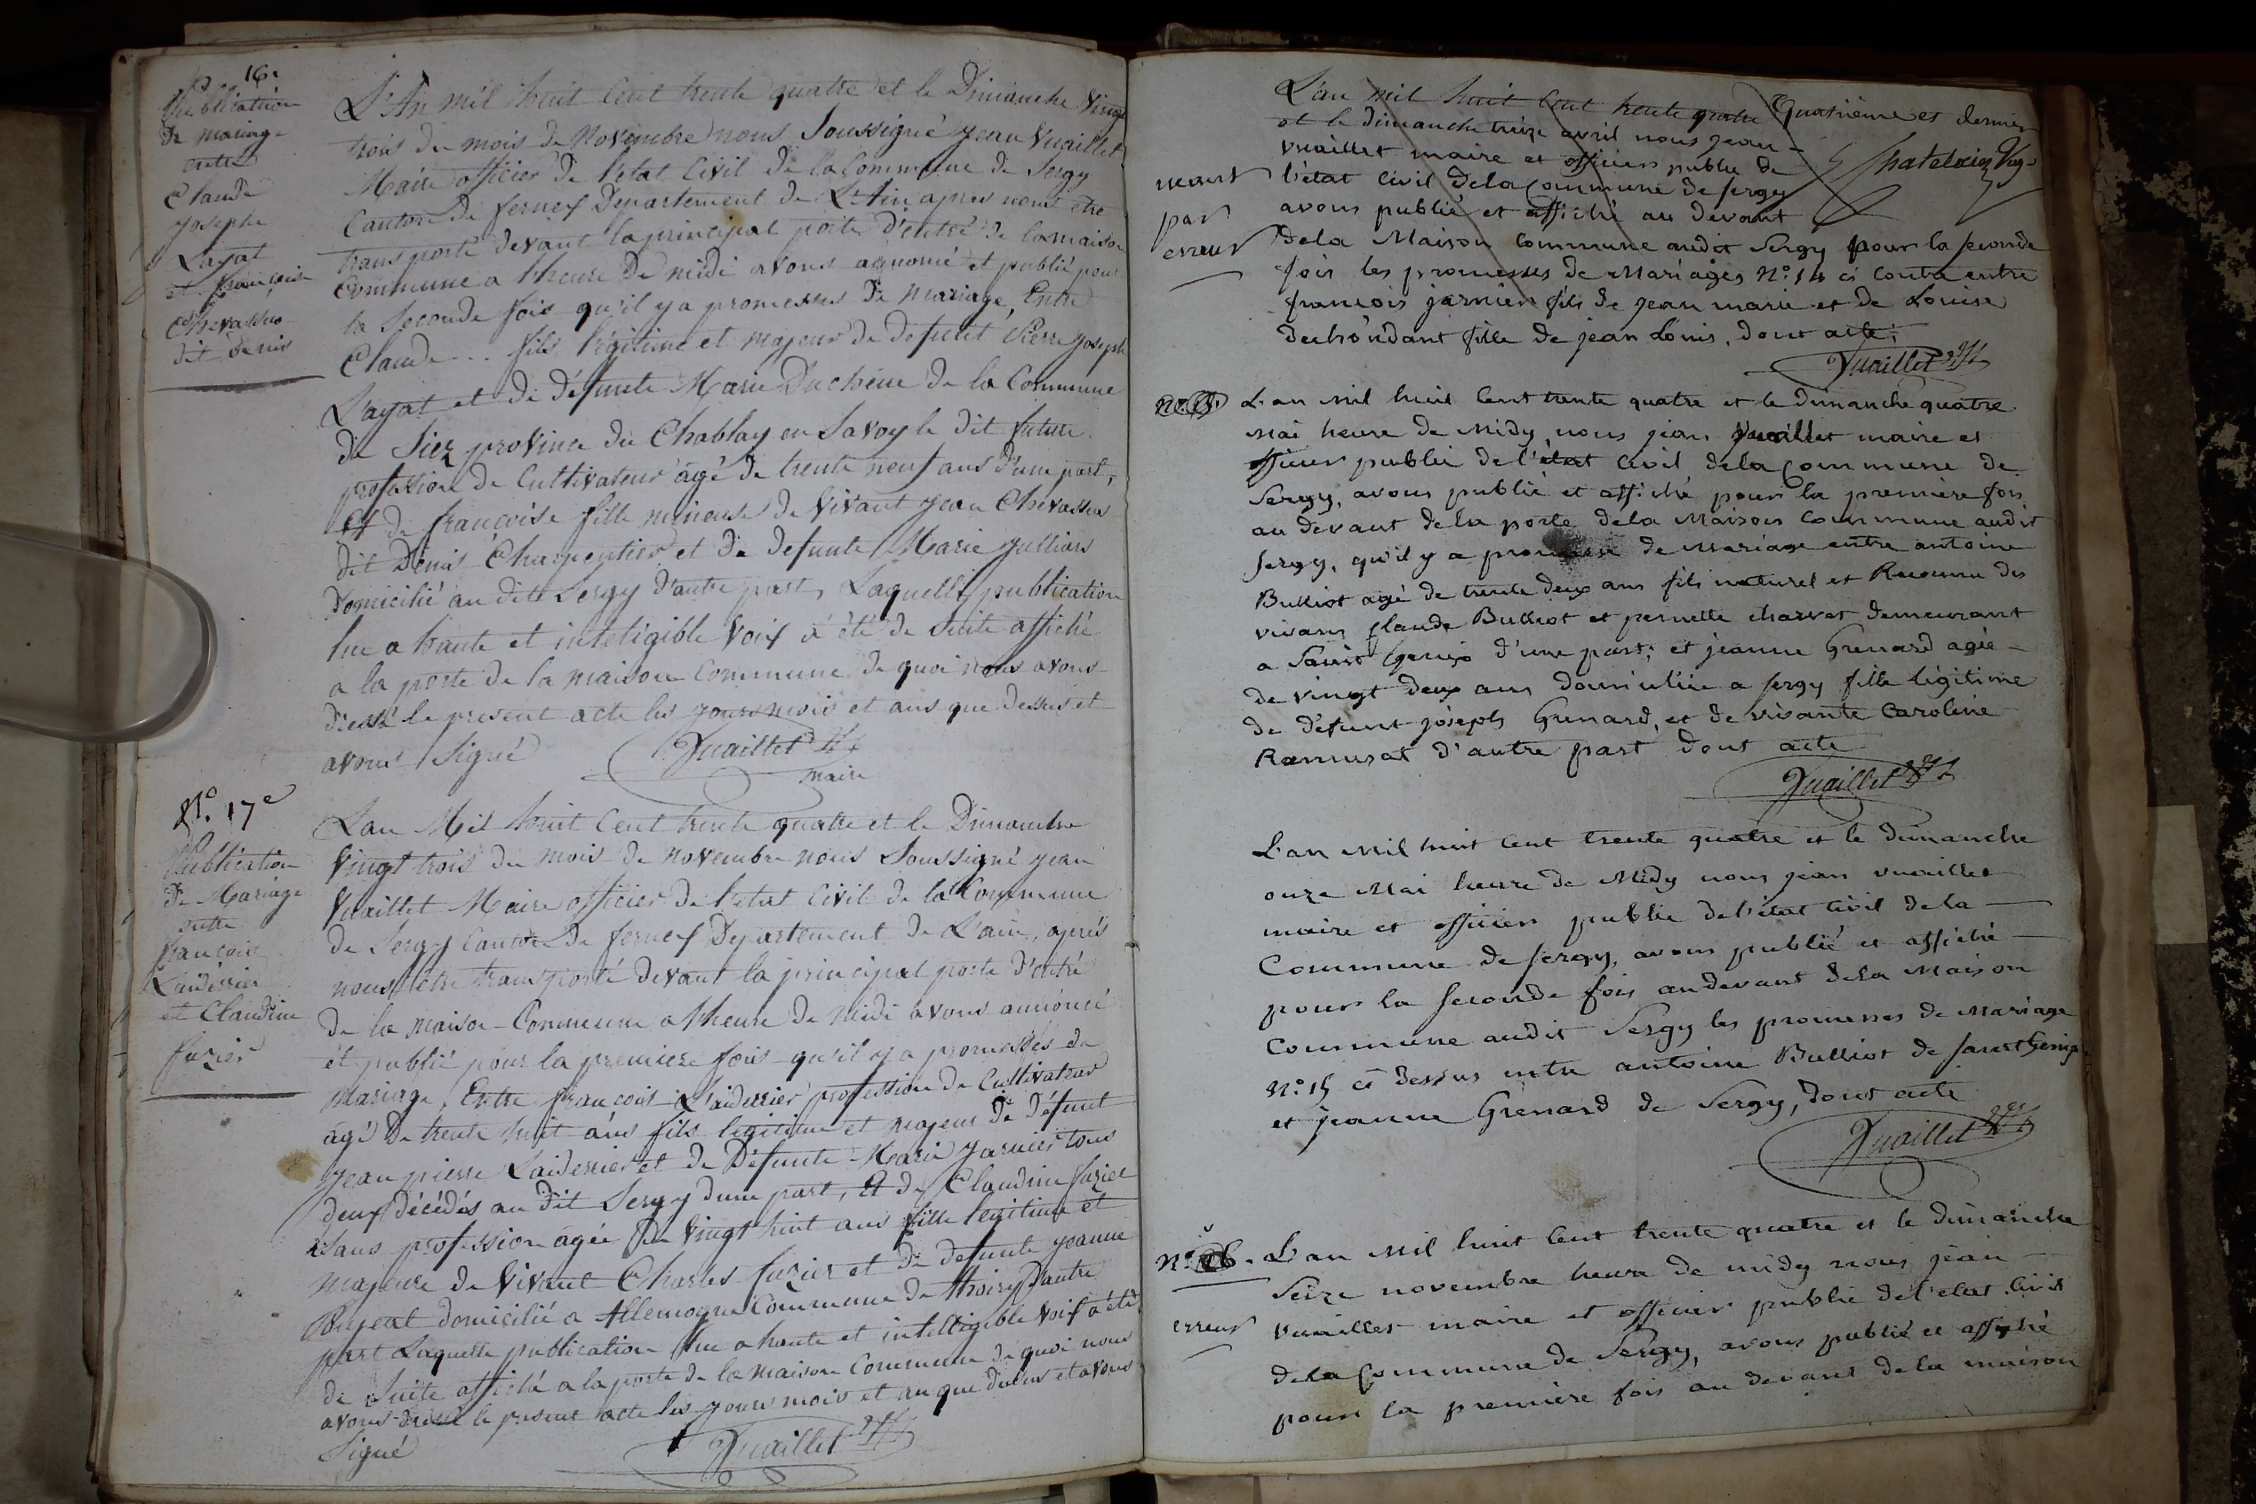 16.
Publication
de mariage
entre
Claude
Josephe
Layat
et françoise
Chevassus
dit Denis
L'An mil huit Cent trente quatre et le Dimanche Vingt
trois du mois de Novembre nous Soussigné jean Vuaillet
Maire officier de l'etat Civil de la Commune de Sergy
Canton de ferney Departement de L'Ain apres nous etre
transporté devant la principal porte D'entré de la maison
Commune a l'heure De midi avons anoncé et publié pour
la Seconde fois qu'il y a promesses De Mariage, Entre
Claude .. fils légitime et majeur de defunt Pierre joseph
Layat et de défunte Marie Duchêne de la Commune
de Siez province du Chablay en Savoy le dit future
profession de Cultivateur âgé de trente neuf ans D'une part,
Et de françoise fille mineuse de Vivant jean Chevassus
dit Denis Charpentier et de defunte Marie julliard
Domicilié au dit Sergy D'autre part, Laquelle publication
lue a haute et inteligible Voix a été de Suite affiché
a la porte de la maison Commune de quoi nous avons
dressé le present acte les jours mois et ans que Dessus et
avons Signé Vuaillet
maire
N°. 17e
Publication
De Mariage
entre
francois
Laidernier
et Claudine
fuzier
L'an Mil huit Cent trente quatre et le Dimanche
Vingt trois du mois de novembre nous Soussigné jean
Vuaillet Maire officier de l'etat Civil de la Commune
de Sergy Canton De ferney Departement De L'ain, après
nous être transporté devant la principal porte D'entré
De la maison Commune a l'heure De midi avons annoncé
et publié pour la premiere fois qu'il y a promesses de
Mariage, Entre francois Laidernier profession de Cultivateur
âgé De trente huit ans fils legitime et majeur de Défunt
jean pierre Laidernier et de Défunte Marie jarnier tous
deux décédés au dit Sergy dune part, Et de Claudine fuzier
Sans profession agée De Vingt huit ans fille legitime et
majeure de Vivant Charles fuzier et de defunte jeanne
domicilié a Allemogne Commune de thoiry D'autre
part Laquelle publication lue a haute et intelligible Voix a été
de Suite affiché a la porte de la maison Commune de quoi nous
avons dressé le present acte les jours mois et an que dessus et avons
Signé Vuaillet
L'an mil huit Cent trente quatre Quatrième et dernier
et le dimanche treize avril nous jean
vuaillet maire et officier public de Chatelain
l'état Civil de la Commune de Sergy
avons publié et affiché au devant
par
erreur
de la Maison Commune audit Sergy pour la seconde
fois les promesses de Mariages N°. 14 ci Contre entre
francois jarnier fils de jean marie et de Louise
Dechondant fille de jean Louis, dont acte;
Vuaillet
L'an mil huit Cent trente quatre et le dimanche quatre
Mai heure de Midy, nous jean Vuaillet maire et
officier public de l'état Civil de la Commune de
Sergy, avons publié et affiché pour la première fois
au devant de la porte de la Maison Commune audit
Sergy, qu'il y a promesse de Mariage entre antoine
Bulliot agé de trente deux ans fils naturel et Reconnu des
vivans Claude Bulliot et pernette charvet demeurant
a Saint Genix d'une part; et jeanne Grenard agée
de vingt deux ans domiciliée a Sergy fille légitime
de défunt joseph Grenard, et de vivante Caroline
Ramusat d'autre part dont acte
Vuaillet
L'an Mil huit Cent trente quatre et le dimanche
onze Mai heure de Midy nous jean vuaillet
maire et officier public de l'état Civil de la
Commune de Sergy, avons publié et affiché
pour la Seconde fois au devant de la Maison
Commune audit Sergy les promesses de Mariage
N°. 15 ci dessus entre antoine Bulliot de Saint Genix
et jeanne Grenard de Sergy, dont acte
Vuaillet
N°. 16.
erreur
L'an Mil huit Cent trente quatre et le dimanche
Seize novembre heure de midy nous jean
Vuaillet maire et officier public de l'etat Civil
de la Commune de Sergy, avons publié et affiché
pour la première fois au devant de la maison